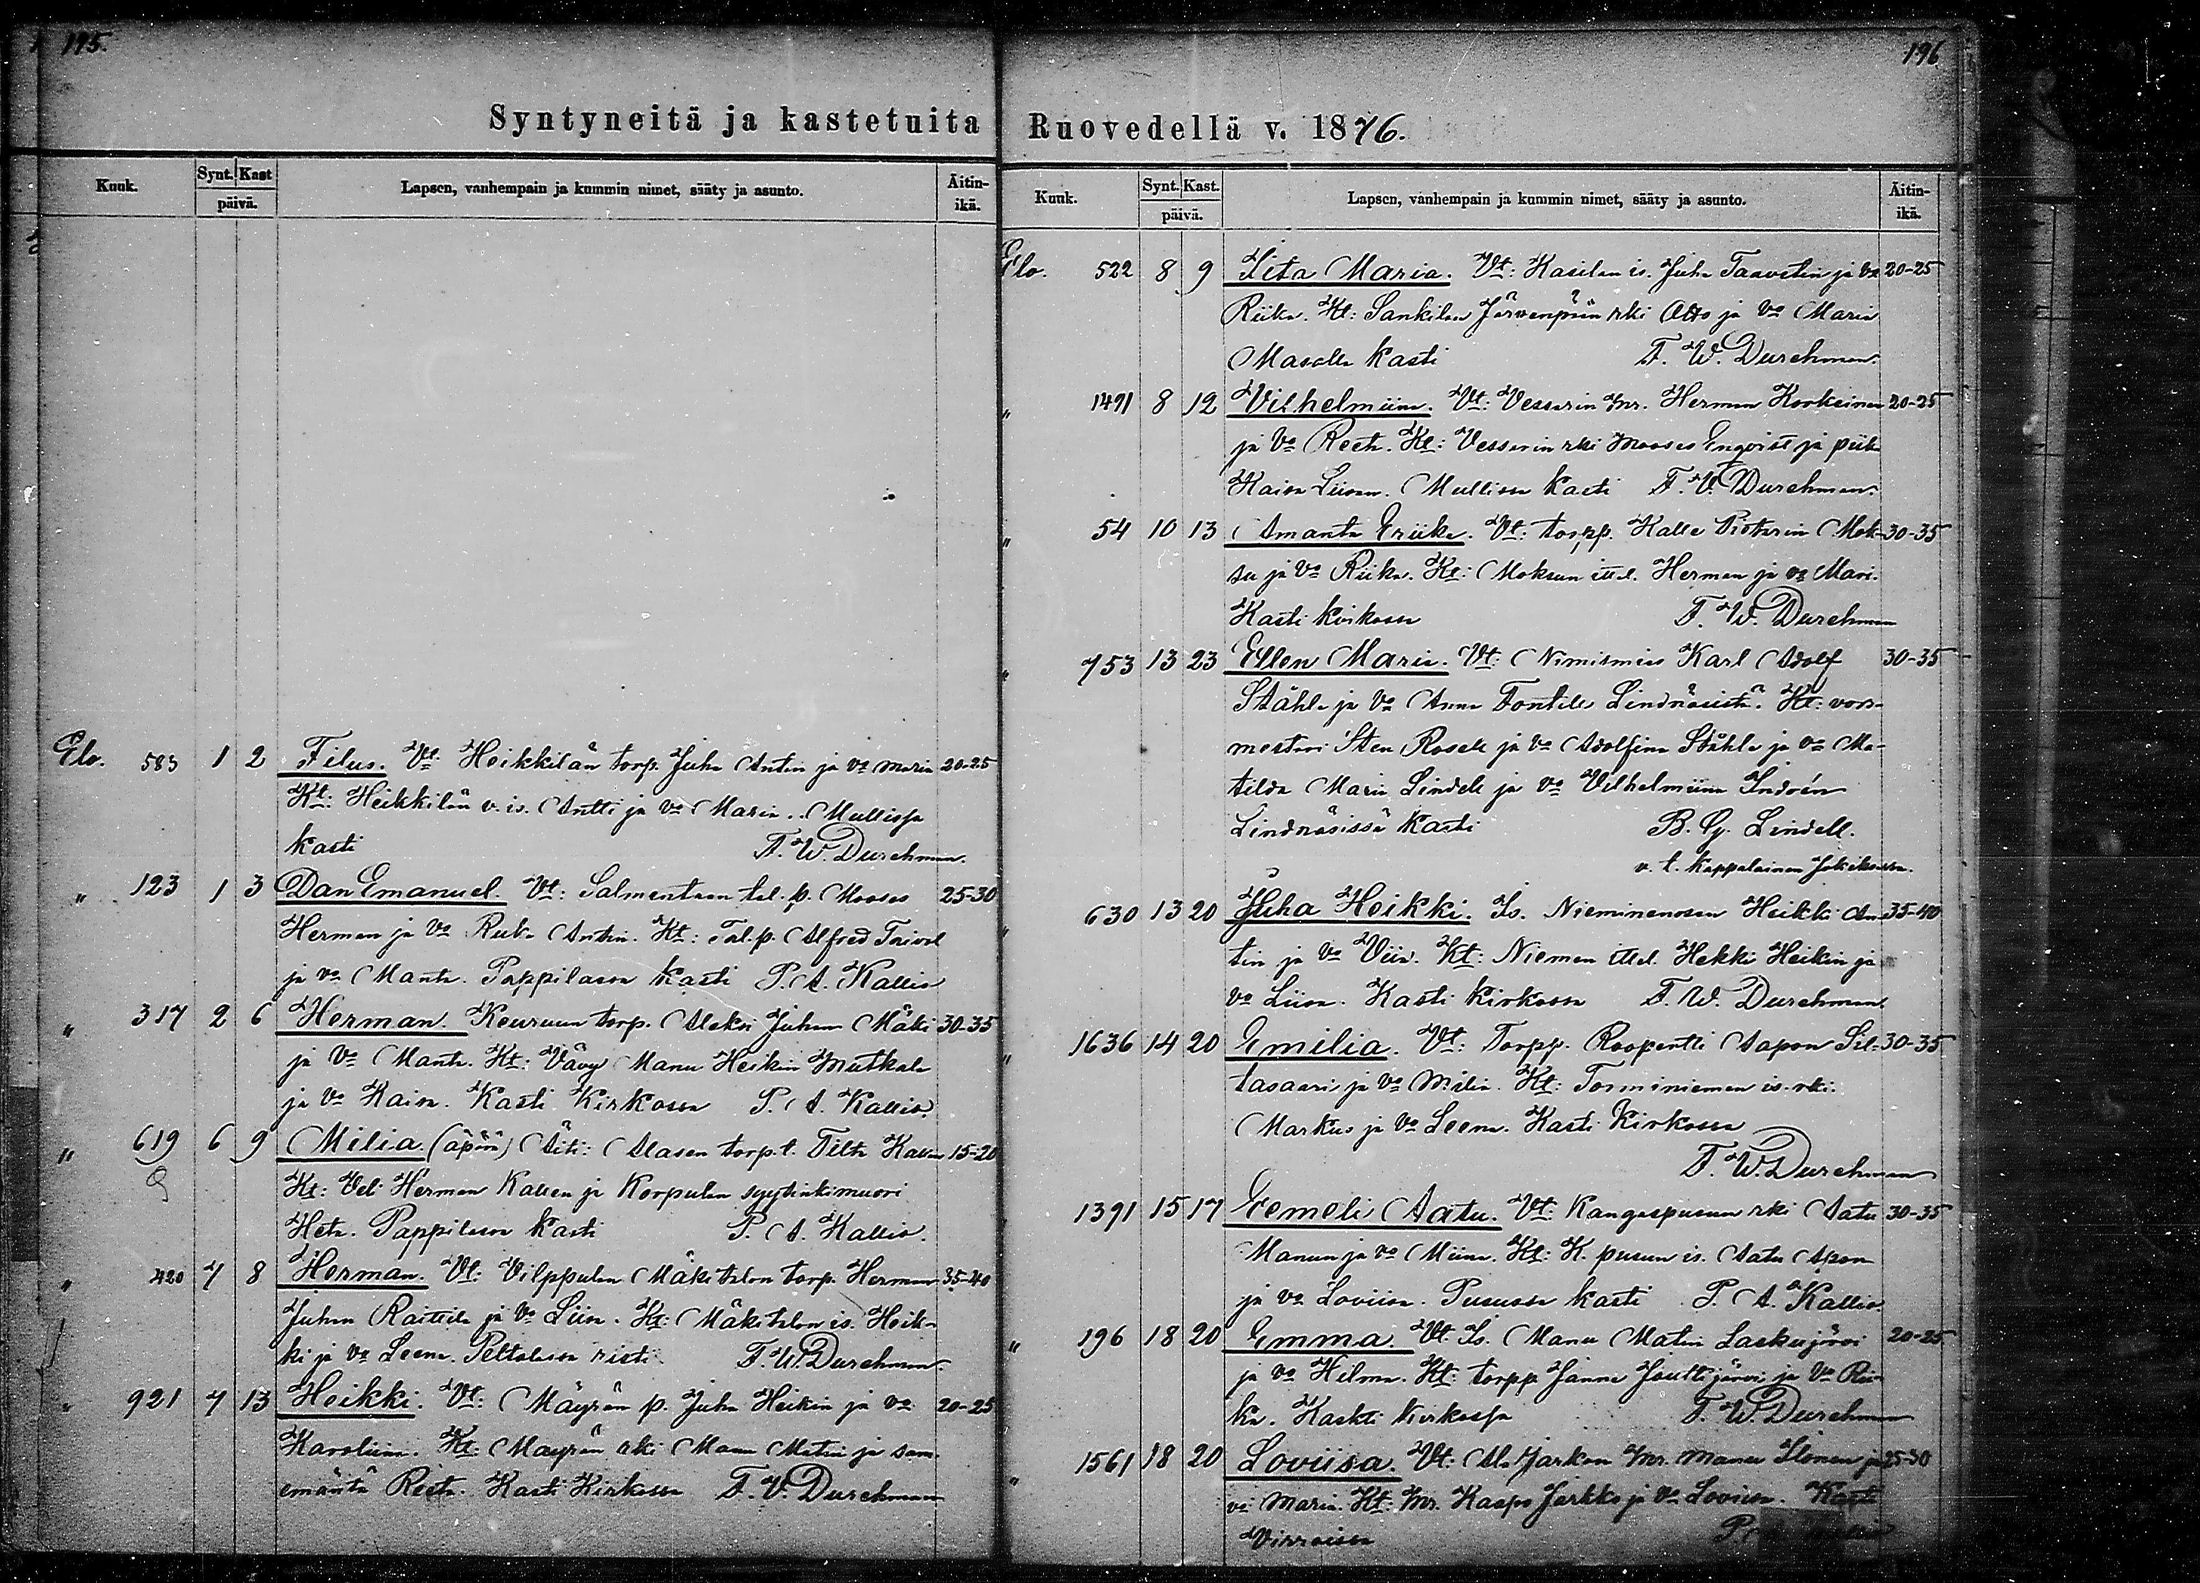 195.
Syntyneitä ja kastetuita
Kuuk. Synt. Kast päivä. Lapsen, vanhempain ja kummin nimet, sääty ja asunto. Äitin-ikä.
Elo. 583 1 2 Filus. Vt: Heikkilän torp. Juha Antin ja va Maria 20-25
Kt: Heikkilän v. is. Antti ja va Maria. Mullissa
kasti F. W. Durchman.
" 123 1 3 Dan Emanuel. Vt: Salmentaan tal. p. Mooses 25-30
Herman ja va Antin. Kt: Tal. p. Alfred
ja va Manta. Pappilassa kasti P. A. Kallio
" 317 2 6 Herman. Keuruun torp. Aleksi Juhan Mäki 30-35
ja va Manta. Kt: Vävy Manu Heikin Mutkala
ja va Kaisa. Kasti Kirkossa P. A. Kallio.
" 619 6 9 Milia (äpärä) Äiti: Alasen torp. t. 15-20
Kt: Veli Herman Kallen ja Korpulan syytinkimuori
Heta. Pappilassa kasti P. A. Kallio.
" 420 7 8 Herman. Vt: Vilppulan Mäkitalon torp. Herman 35-40
Juhan Raittila ja va Liisa. Kt: Mäkitalon is. Heik-
ki ja va Leena. Peltolassa risti F. W. Durchman.
" 921 7 13 Heikki. Vt: Mäyrän p. Juha Heikin ja va 20-25
Karoliina. Kt: Mäyrän rki Manu Matin ja sam.
emäntä Reeta. Kasti Kirkossa F. V. Durchman
196
Ruovedellä v. 1876.
Kuuk. Synt. Kast. päivä. Lapsen, vanhempain ja kummin nimet, sääty ja asunto. Äitin-ikä.
Elo. 522 8 9 Iita Maria. Vt: Kasilan is. Juha Taavetin ja va 20-25
Riika. Kt: Sankilan Järvenpään rki Otto ja va Maria
kasti F. W. Durchman.
" 1491 8 12 Vilhelmiina. Vt: Vesserin mr. Herman Korkeinen 20-25
ja va Reeta. Kt: Vesserin rki Mooses Enqvist ja piika
Kaisa Liisan. Mullissa kasti F. V. Durchman.
" 54 10 13 Amanta Eriika. Vt: torpp. Kalle Pietarin Mok- 30-35
su ja va Riika. Kt: Moksun ittel. Herman ja va Mari.
Kasti kirkossa F. W. Durchman
" 753 13 23 Ellen Maria. Vt: Nimismies Karl Adolf 30-35
Ståhle ja va Anna Fontell Lindnäsistä. Kt: vors-
mestari Sten Rosell ja va Adolfina Ståhle ja va Ma-
tilda Maria Lindell ja va Vilhelmiina Indrén
Lindnäsissä kasti B. G. Lindell.
v. t. kappalainen
" 630 13 20 Juha Heikki. Is. Nieminenosen Heikki An- 35-40
tin ja va Viia. Kt: Niemen ittel. Hekki Heikin ja
va Liisa. Kasti kirkossa F. W. Durchman.
" 1636 14 20 Emilia. Vt: Torpp. Roopertti Aapon Sil- 30-35
tasaari ja va Milia. Kt: Torminiemen is. rki.
Markus ja va Leena. Kasti Kirkossa
F. W. Durchman
1391 15 17 Eemeli Aatu. Vt: Kangaspusun rki Aatu 30-35
Manun ja va Miina. Kt: K. pusun is. Aatu Apon
ja va Loviisa. Pusussa kasti P. A. Kallio.
" 196 18 20 Emma. Vt: Is. Manu Matin Laskujärvi 20-25
ja va Hilma. Kt: torpp Janne Jouttijärvi ja va Rii-
ka. Kaskti kirkossa F. W. Durchman
" 1561 18 20 Loviisa. Vt: Ala Jarkon mr. Manu Ilonen ja 25-30
va Maria. Kt: mr. Kaapo Jarkko ja va Loviisa. Kasti
Virroissa